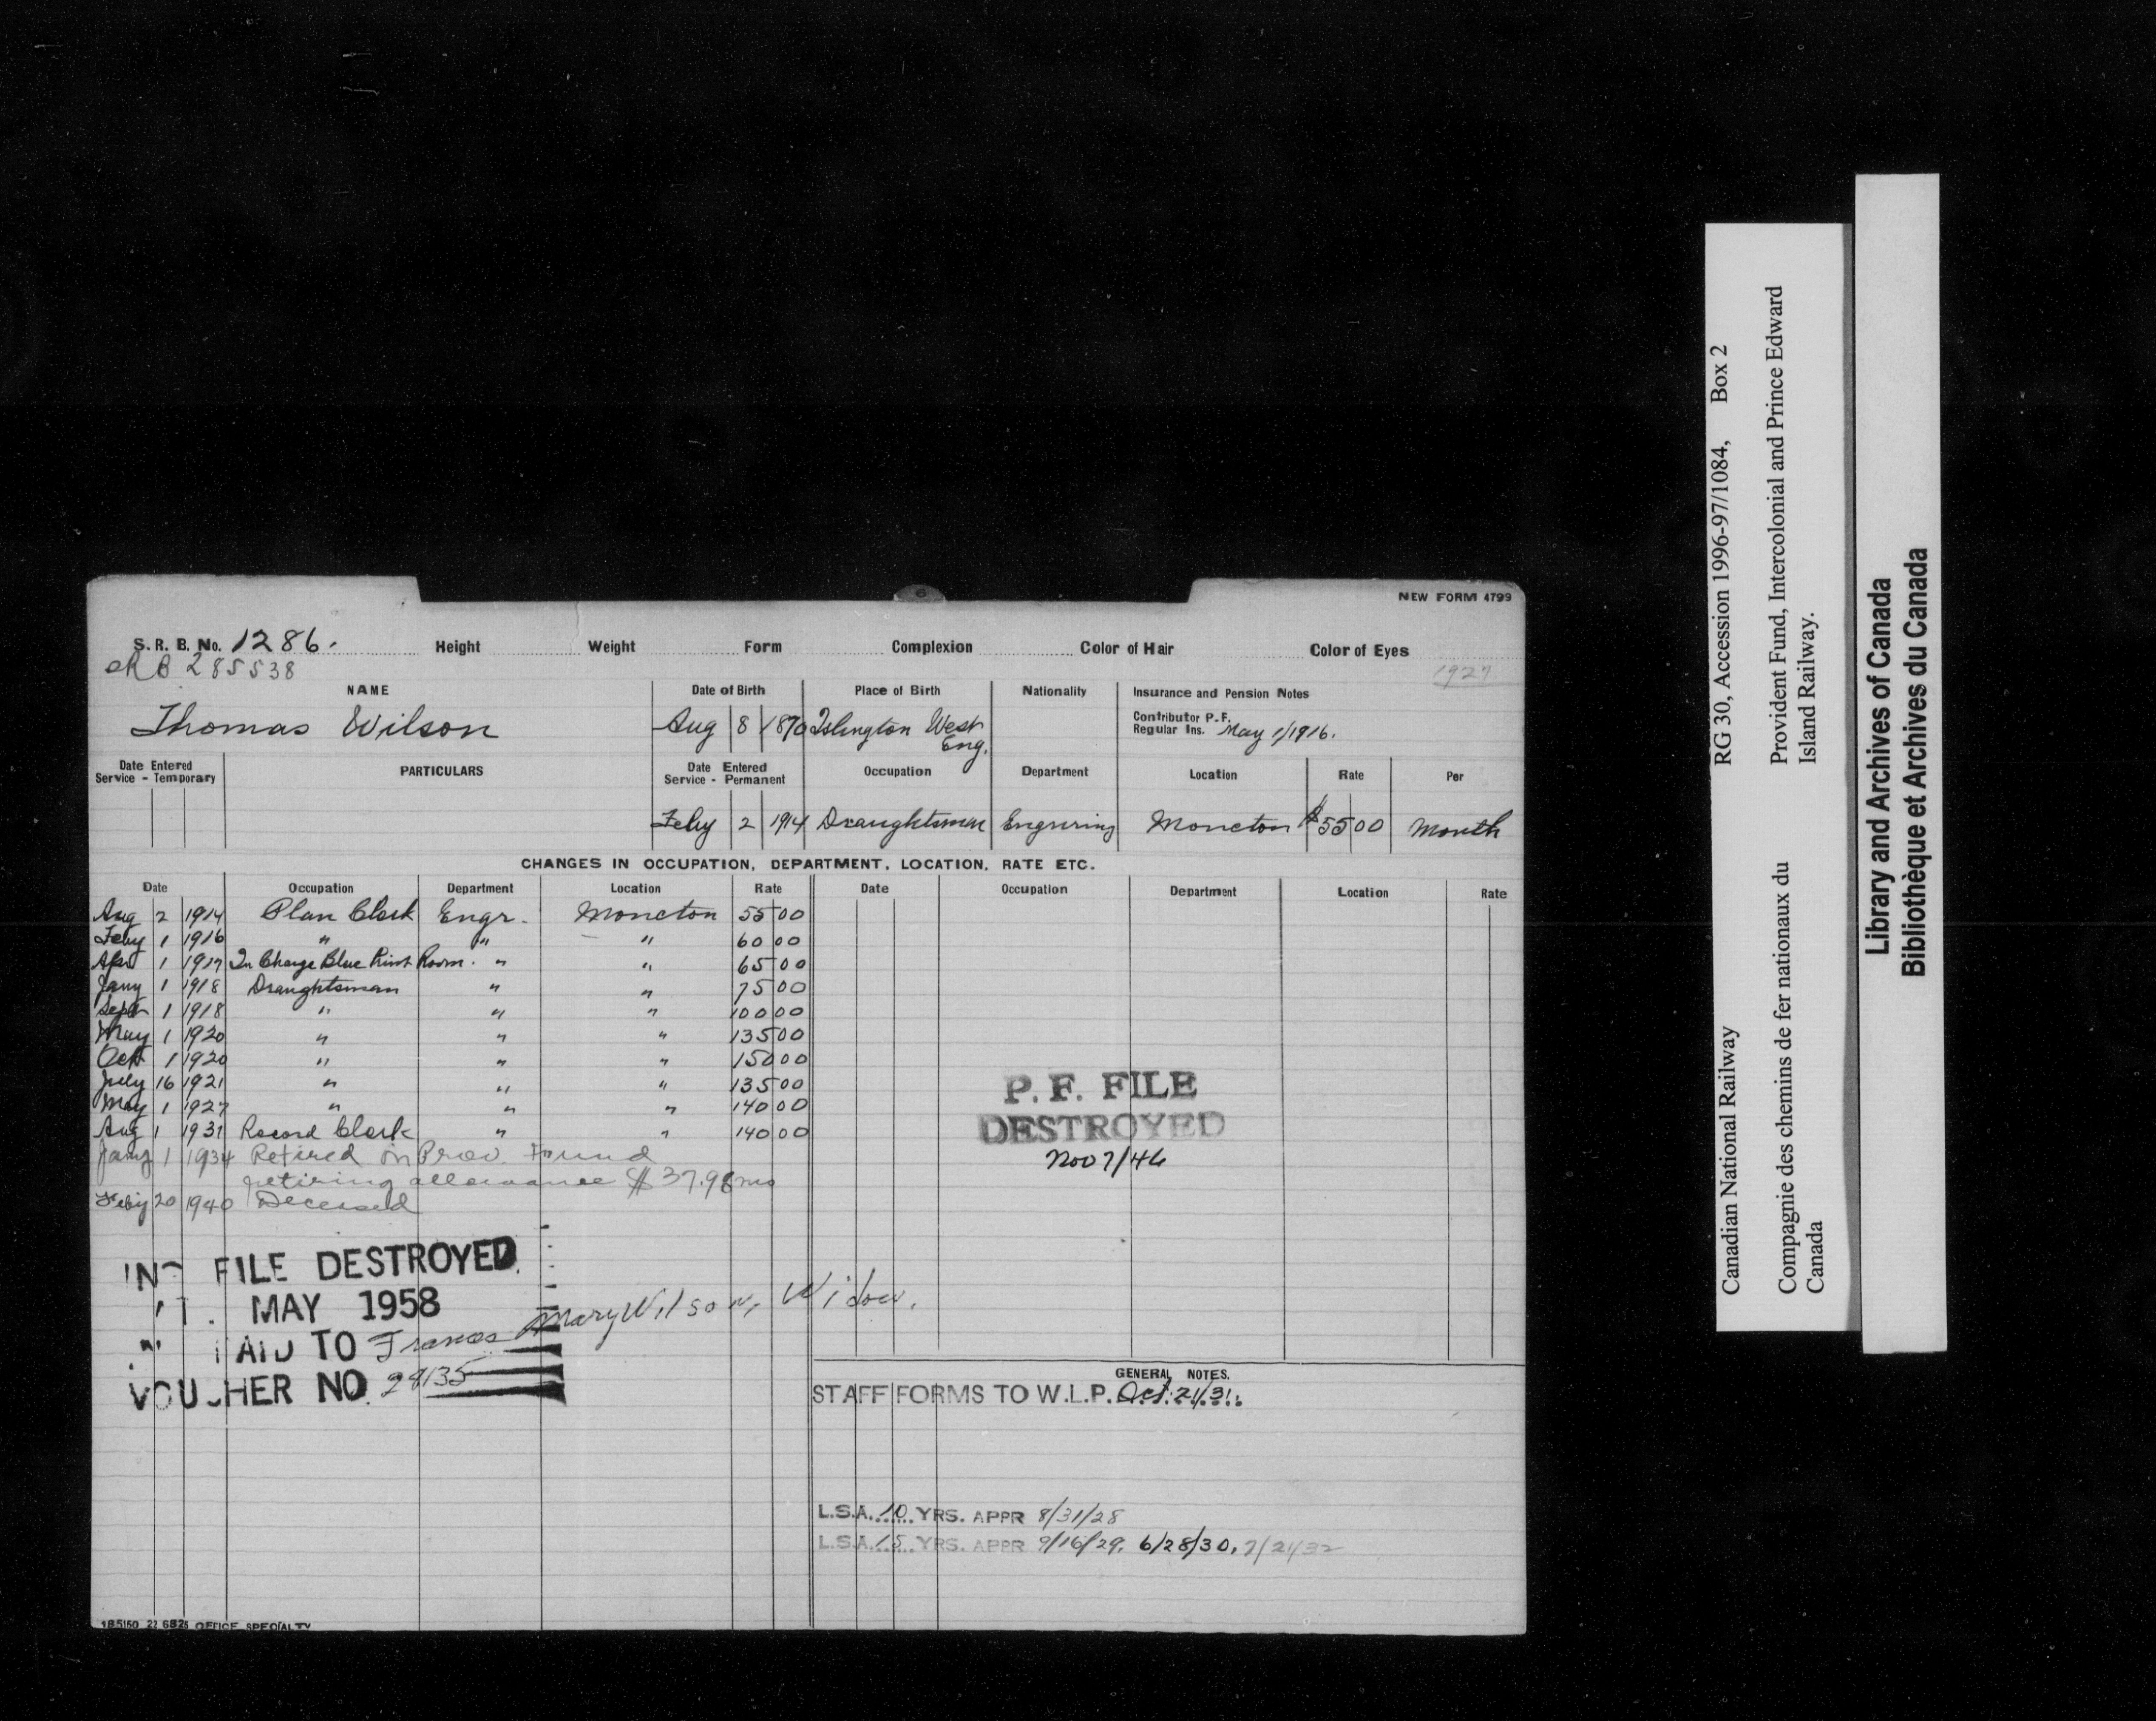 6
NEW FORM 4799
S. R. B. No. 1286. Height Weight Form Complexion Color of Hair Color of Eyes
SRB 285538
1927
NAME Date of Birth Place of Birth Nationality Insurance and Pension Notes
Thomas Wilson Aug 8 1870 Islington West Eng. Contributor P.F. Regular Ins. May 1/1916.
Date Entered Service - Temporary PARTICULARS Date Entered Service - Permanent Occupation Department Location Rate Per
Feby 2 1914 Draughtsman Engnring Moncton $55 00 Month
CHANGES IN OCCUPATION, DEPARTMENT, LOCATION, RATE ETC.
Date Occupation Department Location Rate Date Occupation Department Location Rate
Aug 2 1914 Plan Clerk Engr. Moncton 55 00
Feby 1 1916 " " " 60 00
Apr 1 1917 In Charge Blue Print Room. " " 65 00
Jany 1 1918 Draughtsman " " 75 00
Sept 1 1918 " " " 100 00
May 1 1920 " " " 135 00
Oct 1 1920 " " " 150 00
July 16 1921 " " " 135 00
May 1 1927 " " " 140 00
Aug 1 1931 Record Clerk " " 140 00
Jany 1 1934 Retired on Prov. Fund
retiring allowance $37.98 mo
Feby 20 1940 Deceased
P. F. FILE
DESTROYED
Nov 7/46
FILE DESTROYED
MAY 1958
PAID TO Frances Mary Wilson, Widow.
VOUCHER NO. 29135
GENERAL NOTES.
STAFF FORMS TO W.L.P. Oct. 21/31.
L.S.A. 10 YRS. APPR 8/31/28
L.S.A. 15 YRS. APPR 9/16/29. 6/28/30. 7/21/32
185150 22 6825 OFFICE SPECIALTY
RG 30, Accession 1996-97/1084, Box 2
Provident Fund, Intercolonial and Prince Edward
Island Railway.
Canadian National Railway
Compagnie des chemins de fer nationaux du
Canada
Library and Archives of Canada
Bibliothèque et Archives du Canada